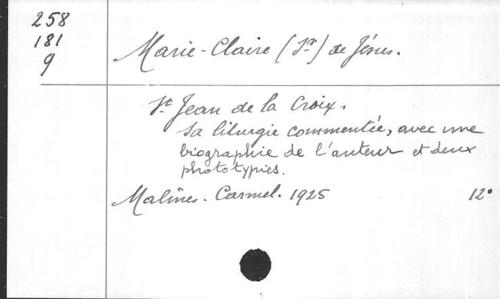 258
181
9
Marie-Claire (Sr) de Jésus.
St Jean de la Croix.
Sa liturgie commentée, avec une
biographie de l'auteur et deux
phototypies.
Malines. Carmel. 1925 12°